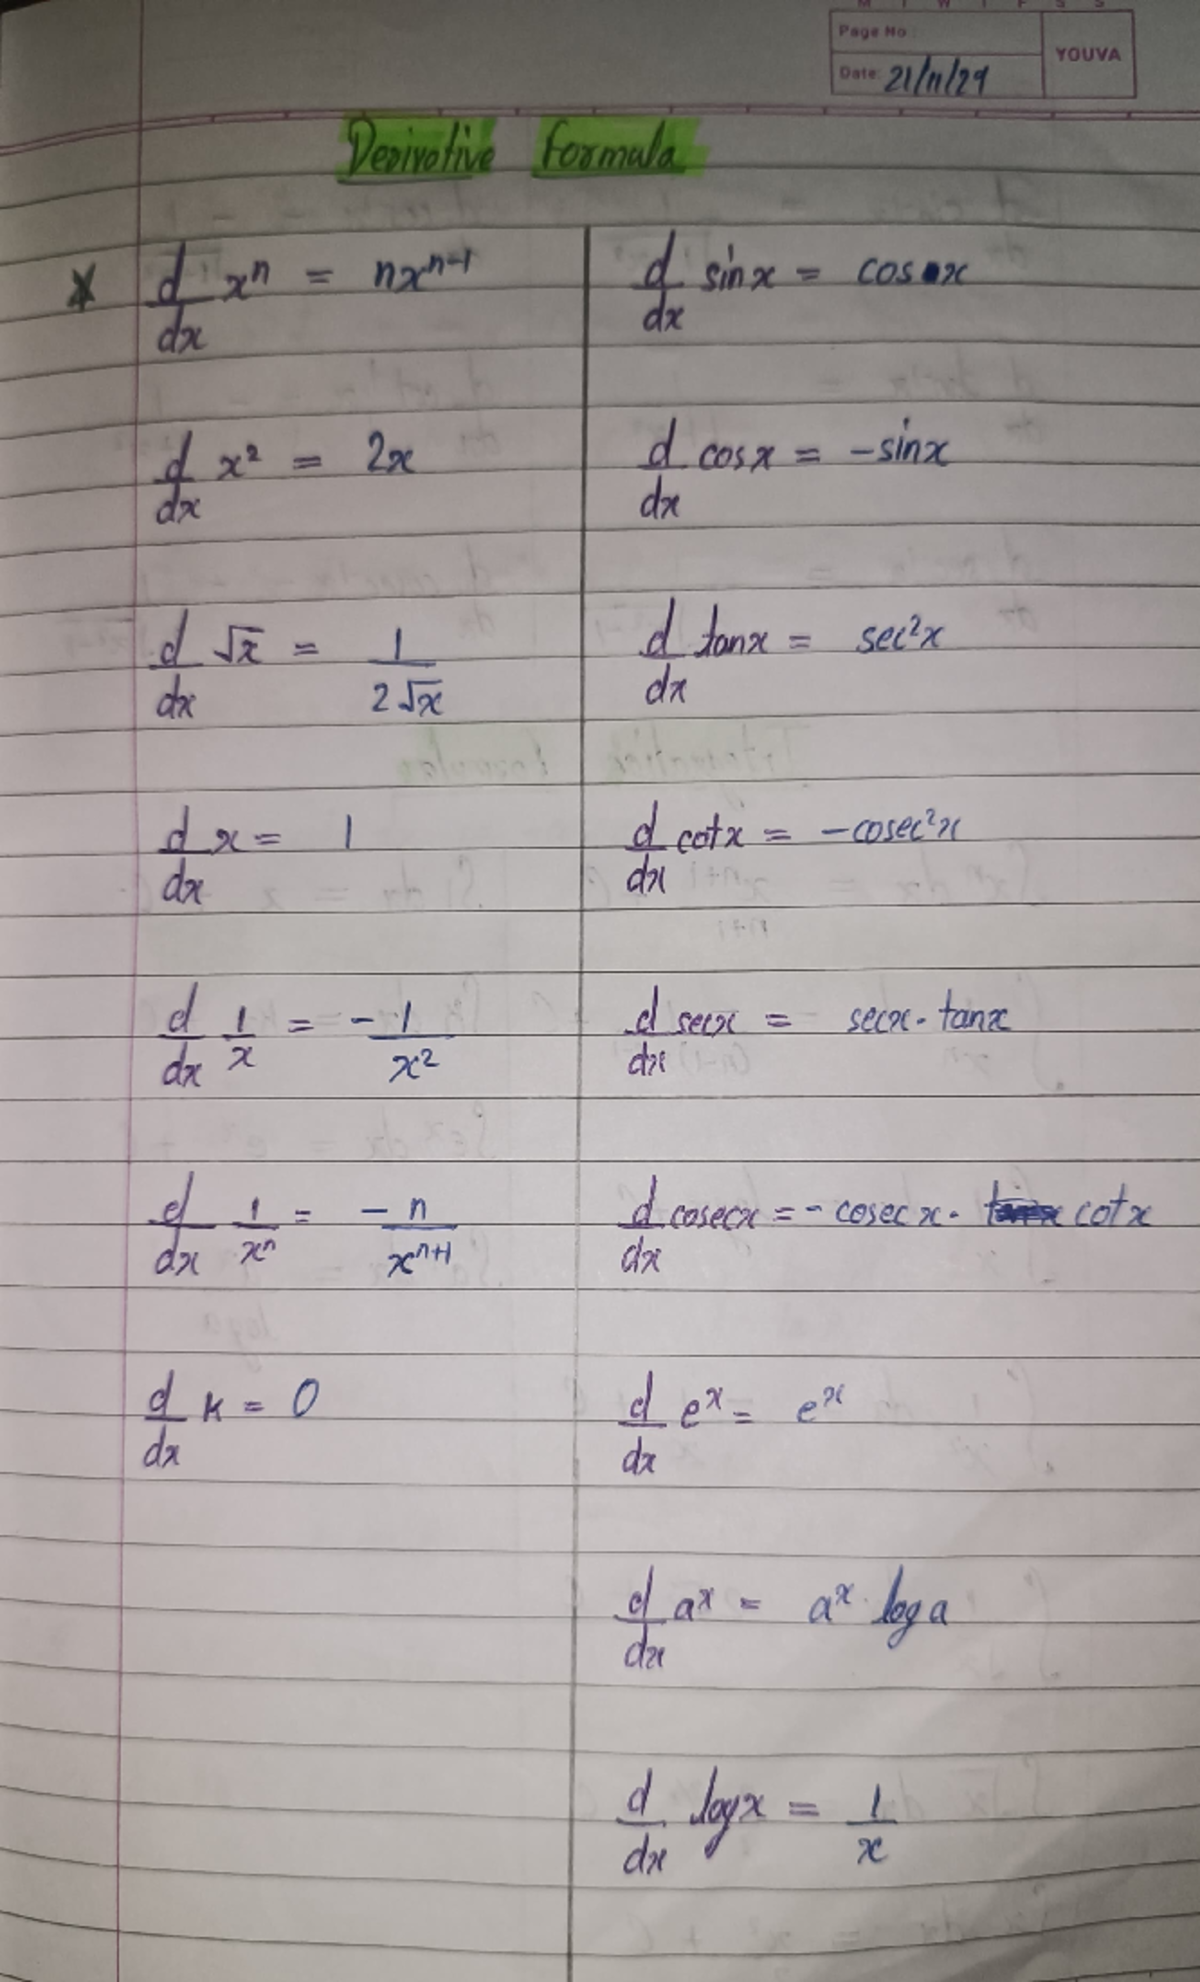 M T W T F S S
Page No.:
Date: 21/11/24
YOUVA
Derivative Formula
* d/dx xⁿ = nxⁿ⁻¹
d/dx x² = 2x
d/dx √x = 1/2√x
d/dx x = 1
d/dx 1/x = -1/x²
d/dx 1/xⁿ = -n/xⁿ⁺¹
d/dx k = 0
d/dx sinx = cosx
d/dx cosx = -sinx
d/dx tanx = sec²x
d/dx cotx = -cosec²x
d/dx secx = secx · tanx
d/dx cosecx = - cosecx · cotx
d/dx eˣ = eˣ
d/dx aˣ = aˣ log a
d/dx logx = 1/x